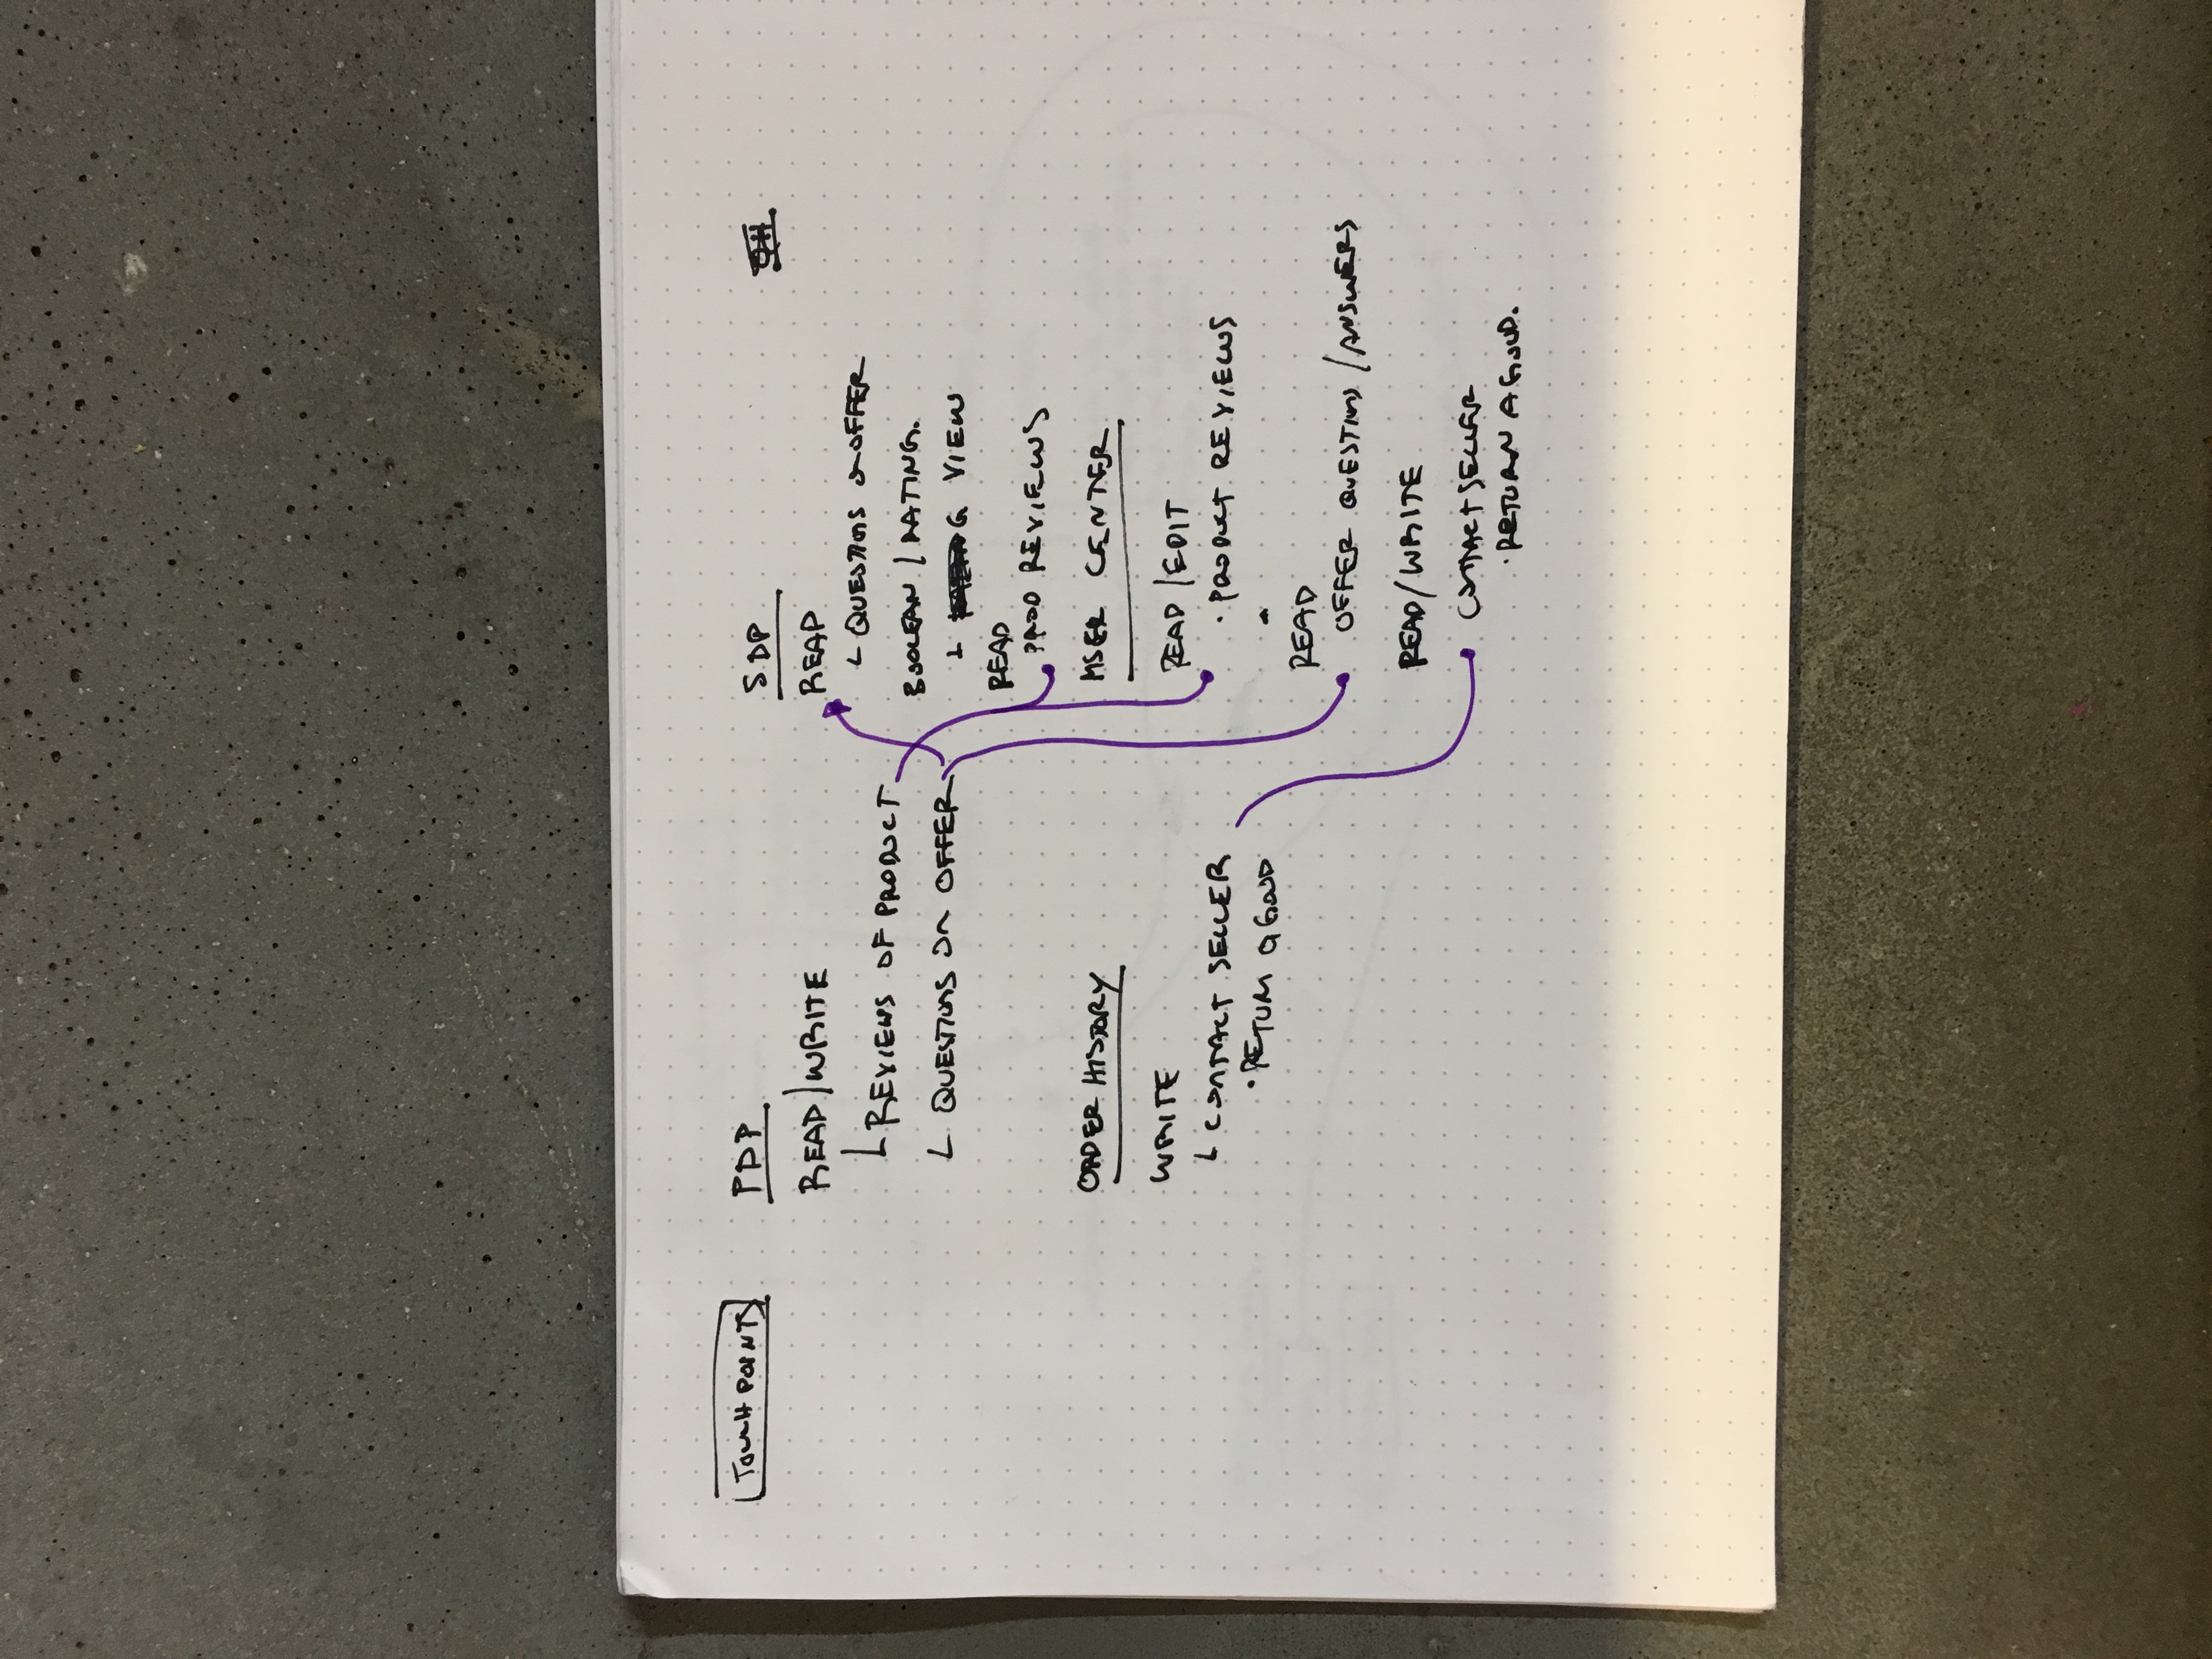 TOUCHPOINTS
PDP
READ/WRITE
REVIEWS OF PRODUCT
QUESTIONS ON OFFER
ORDER HISTORY
WRITE
CONTACT SELLER
• RETURN A GOOD
SDP
READ
QUESTIONS ON OFFER
BOOLEAN / RATING.
VIEW
READ
PROD REVIEWS
USER CENTER
READ/EDIT
• PRODUCT REVIEWS
READ
OFFER QUESTIONS/ANSWERS
READ/WRITE
CONTACT SELLER
• RETURN A GOOD.